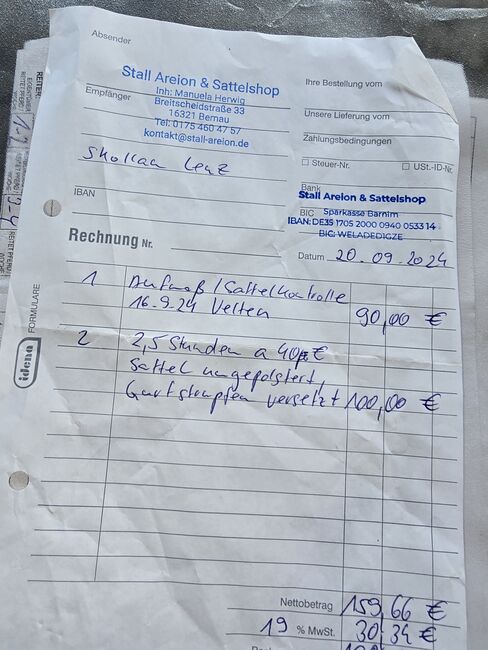 Absender
Stall Areion & Sattelshop
Inh: Manuela Herwig
Breitscheidstraße 33
16321 Bernau
Tel: 0175 460 47 57
kontakt@stall-areion.de
Empfänger
Ihre Bestellung vom
Unsere Lieferung vom
Zahlungsbedingungen
Steuer-Nr.
USt.-ID-Nr.
IBAN
Bank
Stall Areion & Sattelshop
BIC
Sparkasse Barnim
IBAN: DE35 1705 2000 0940 0533 14
BIC: WELADED1GZE
Rechnung Nr.
Datum 20.09.2024
1 Aufmaß / Sattelkontrolle
16.9.24 Velten 90,00 €
2 2,5 Stunden a 40 €
Sattel umgepolstert,
Gurtstrupfen versetzt 100,00 €
idena
FORMULARE
Nettobetrag 159,66 €
19 % MwSt. 30,34 €